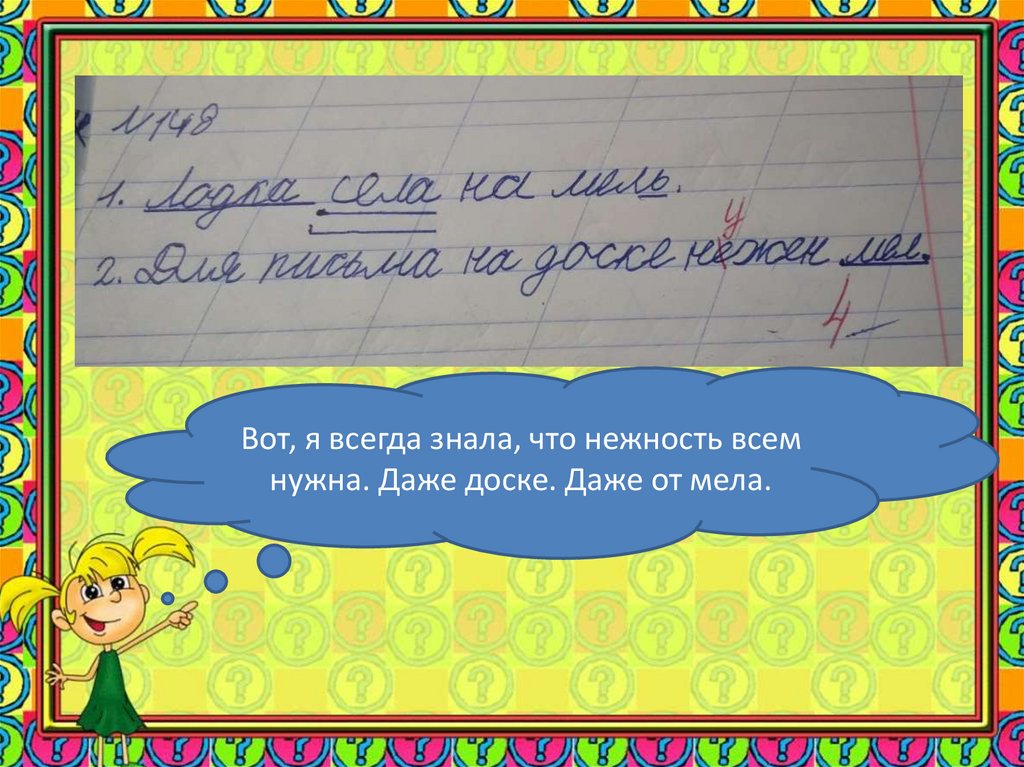 №148
1. Лодка села на мель.
у
2. Для письма на доске нежен мел.
4
Вот, я всегда знала, что нежность всем
нужна. Даже доске. Даже от мела.